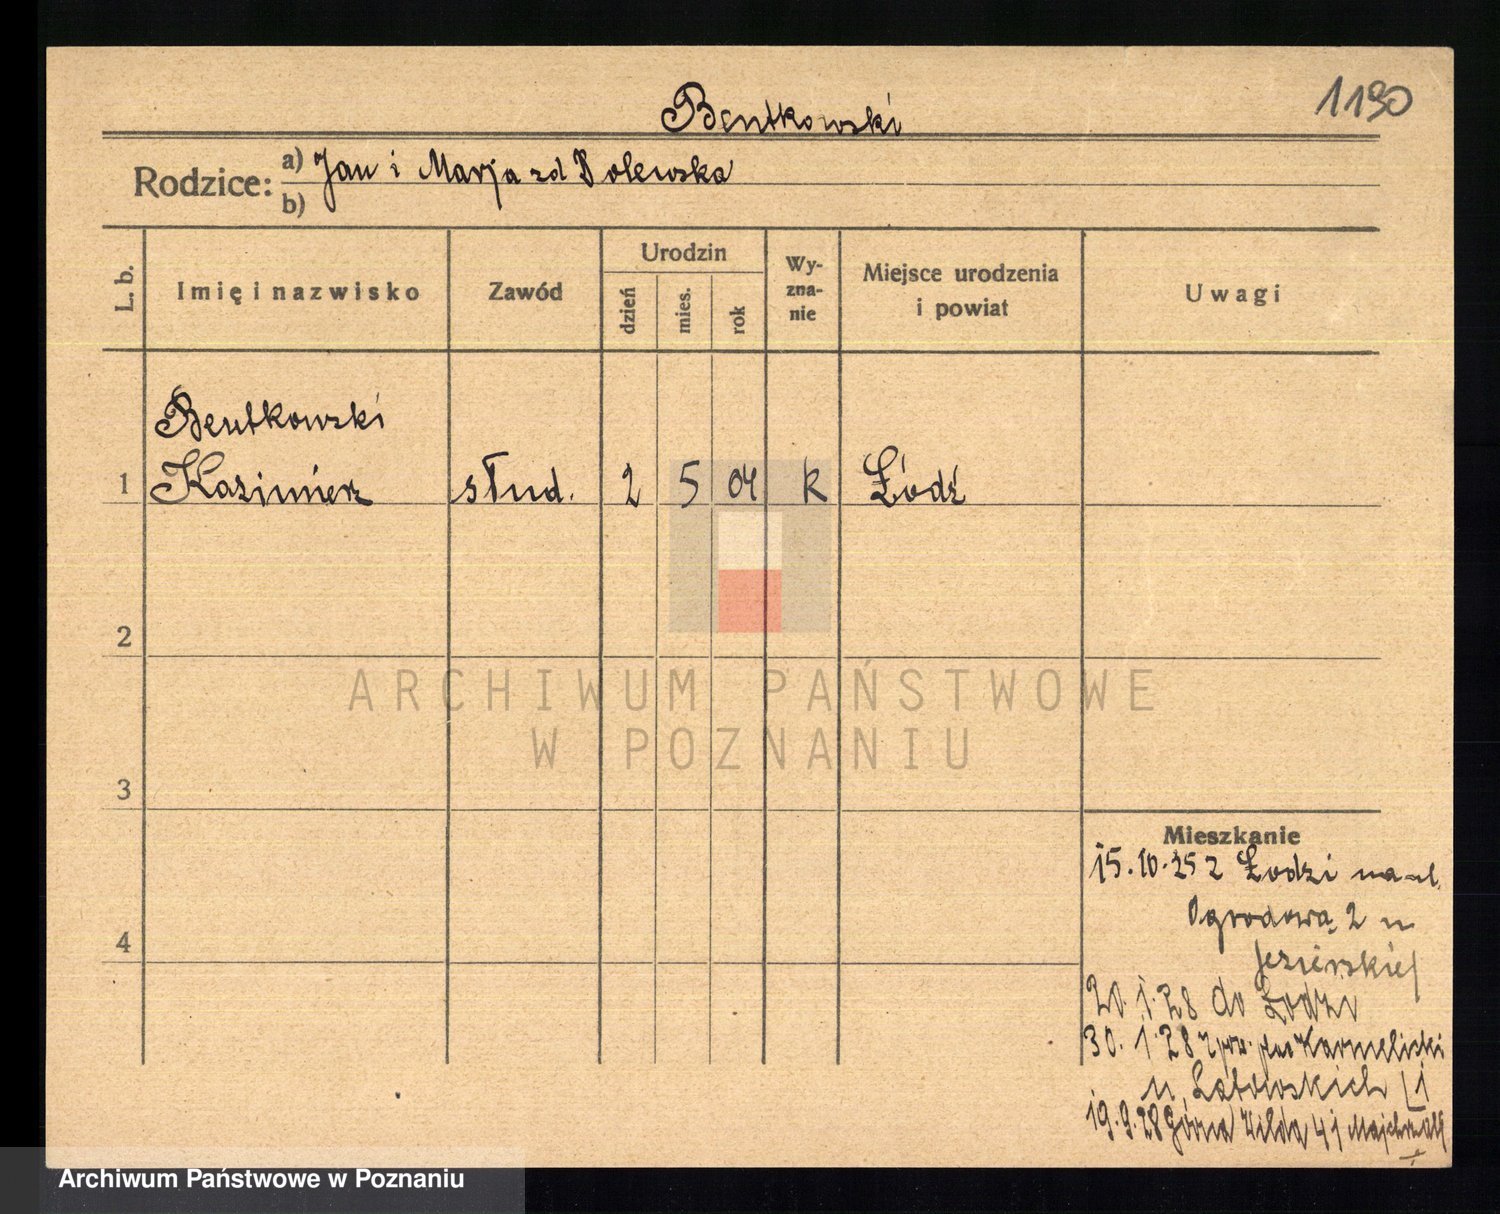 1190
Bentkowski
Rodzice: a) Jan i Marja zd Dolewska
b)
L. b.
Imię i nazwisko
Zawód
Urodzin
dzień
mies.
rok
Wy-
zna-
nie
Miejsce urodzenia
i powiat
Uwagi
Bentkowski
1 Kazimierz stud. 2 5 04 k Łódź
2
3
4
ARCHIWUM PAŃSTWOWE
W POZNANIU
Mieszkanie
15.10.25 z Łodzi na ul.
Ogrodową 2 u
Jezierskiej
20.1.28 do Łodzi
30.1.28 Karmelicki
u
19.9.28 Górna Wilda 41
Archiwum Państwowe w Poznaniu